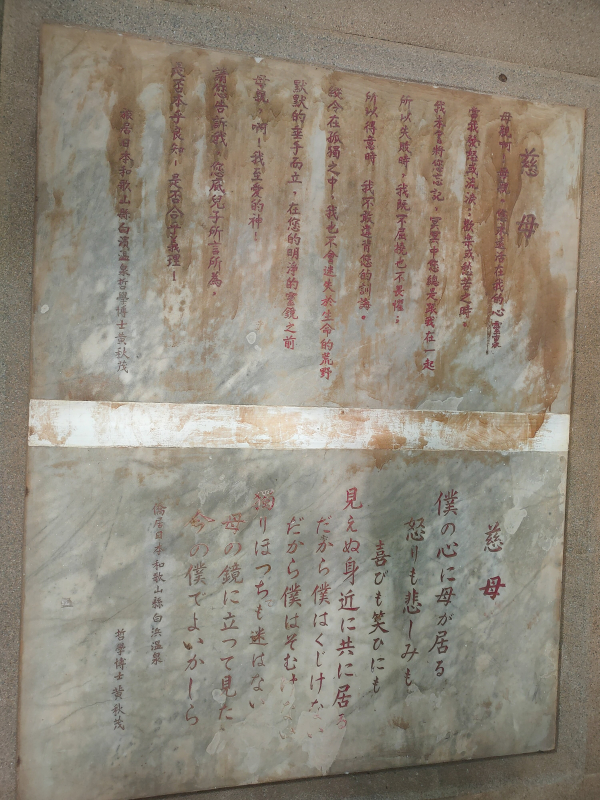 慈母
母親啊！母親，您永遠活在我的心靈裏
當我愁陷或流淚，歡樂或愁苦之時。
我未曾將您忘記，冥冥中您總是跟我在一起
所以失敗時，我既不屈撓也不畏懼；
所以得意時　我不敢違背您的訓誨。
縱令在孤獨之中，我也不會迷失於生命的荒野
默默的垂手而立，在您的明淨的寶鏡之前
母親，啊！我至愛的神！
請您告訴我，您底兒子所言所為。
是否本乎良知，是否合乎義理！
旅居日本和歌山縣白濱溫泉哲學博士黃秋茂
慈母
僕の心に母が居る
怒りも悲しみも
喜びも笑ひにも
見えぬ身近に共に居る
だから僕はくじけない
だから僕はそむかない
独りぼっちも迷はない
母の鏡に立つて見た
今の僕でよいかしら
僑居日本和歌山縣白浜温泉
哲學博士黃秋茂